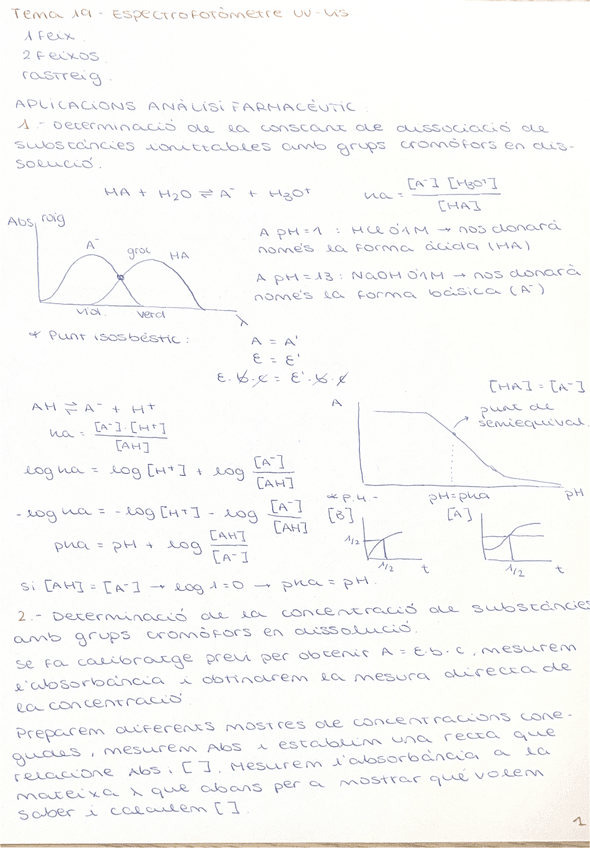 Tema 19 - Espectrofotòmetre UV-Vis
1 feix.
2 feixos.
rastreig.
APLICACIONS ANÀLISI FARMACÈUTIC.
1.- Determinació de la constant de dissociació de
substàncies ionitzables amb grups cromòfors en dis-
solució.
HA + H2O ⇌ A⁻ + H3O⁺
Ka = [A⁻] [H3O⁺] / [HA]
Abs roig
A⁻ groc HA
viol. verd λ
A pH=1 : HCl 0'1M → nos donarà
només la forma àcida (HA)
A pH=13 : NaOH 0'1M → nos donarà
només la forma bàsica (A⁻)
* Punt isosbèstic :
A = A'
ε = ε'
ε·b·c = ε'·b·c
[HA] = [A⁻]
A
punt de
semiequival.
pH=pKa pH
AH ⇌ A⁻ + H⁺
Ka = [A⁻]·[H⁺] / [AH]
log Ka = log [H⁺] + log [A⁻] / [AH]
-log Ka = -log [H⁺] - log [A⁻] / [AH]
pKa = pH + log [AH] / [A⁻]
* P.4 -
[B] [A]
1/2
1/2 t 1/2 t
si [AH] = [A⁻] → log 1 = 0 → pKa = pH.
2.- Determinació de la concentració de substàncies
amb grups cromòfors en dissolució.
Se fa calibratge previ per obtenir A = ε·b·c, mesurem
l'absorbància i obtindrem la mesura directa de
la concentració.
Preparem diferents mostres de concentracions cone-
gudes, mesurem Abs i establim una recta que
relacione Abs i [ ]. Mesurem l'absorbància a la
mateixa λ que abans per a mostrar què volem
saber i calculem [ ].
1